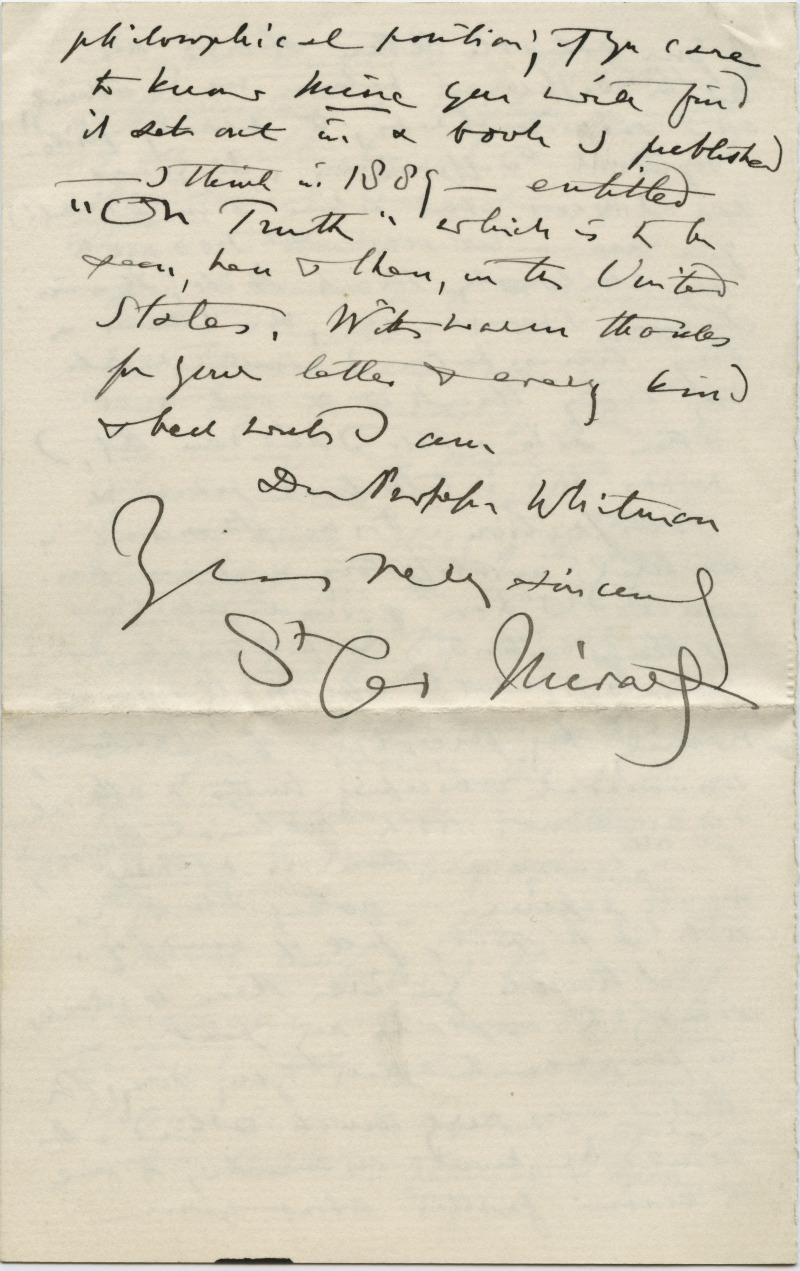 philosophical position; if you care
to know mine you will find
it set out in a book I published
— I think in 1889 — entitled
"On Truth" which is to be
seen, here & there, in the United
States. With warm thanks
for your letter & every kind
& best wishes I am
Dear Professor Whitman
Yours very sincerely
St Geo Mivart